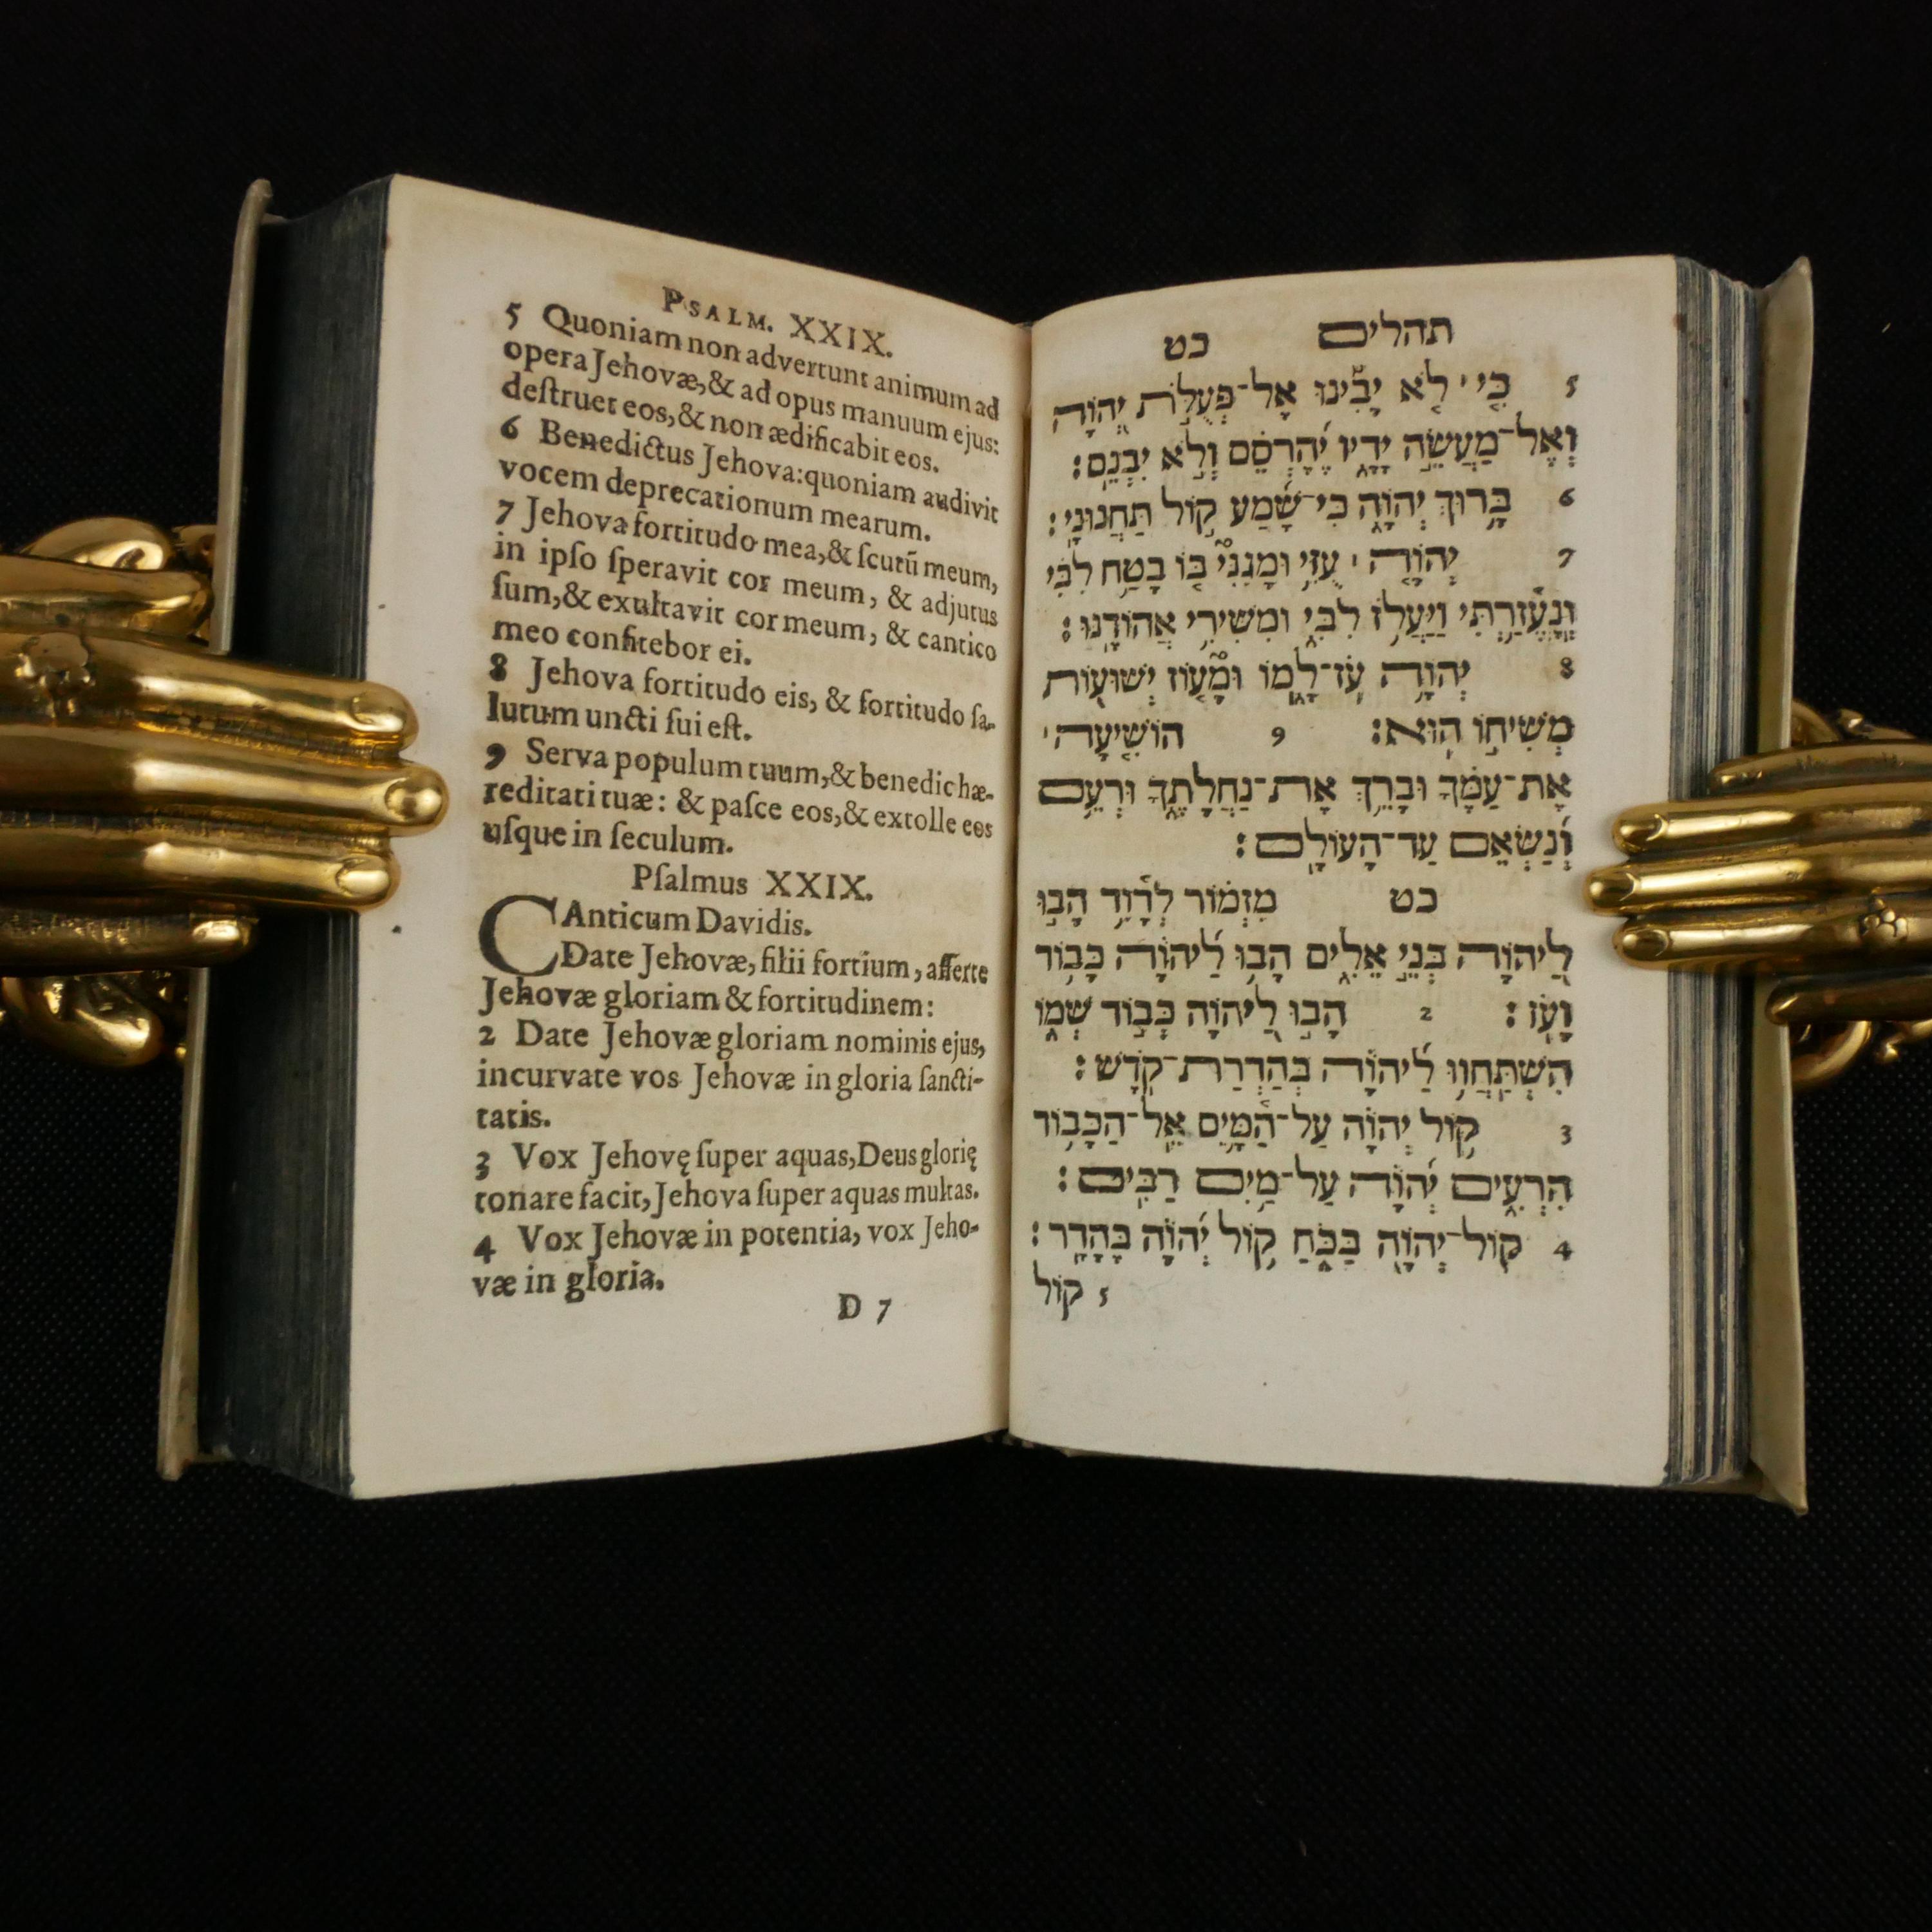 PSALM. XXIX.
5 Quoniam non advertunt animum ad
opera Jehovæ,& ad opus manuum ejus:
deſtruet eos,& non ædificabit eos.
6 Benedictus Jehova:quoniam audivit
vocem deprecationum mearum.
7 Jehova fortitudo mea,& ſcutū meum,
in ipſo ſperavit cor meum, & adjutus
ſum,& exultavit cor meum, & cantico
meo confitebor ei.
8 Jehova fortitudo eis, & fortitudo ſa-
lutum uncti ſui eſt.
9 Serva populum tuum,& benedic hæ-
reditati tuæ: & paſce eos,& extolle eos
uſque in ſeculum.
Pſalmus XXIX.
CAnticum Davidis.
Date Jehovæ, filii fortium, afferte
Jehovæ gloriam & fortitudinem:
2 Date Jehovæ gloriam nominis ejus,
incurvate vos Jehovæ in gloria ſancti-
tatis.
3 Vox Jehovę ſuper aquas,Deus glorię
tonare facit,Jehova ſuper aquas multas.
4 Vox Jehovæ in potentia, vox Jeho-
væ in gloria.
D 7
תהלים כט
5 כִּ֤י ׀ לֹ֤א יָבִ֡ינוּ אֶל־פְּעֻלֹּ֣ת יְ֭הוָה
וְאֶל־מַעֲשֵׂ֣ה יָדָ֑יו יֶ֝הֶרְסֵ֗ם וְלֹ֣א יִבְנֵֽם׃
6 בָּר֥וּךְ יְהוָ֑ה כִּי־שָׁ֝מַע ק֣וֹל תַּחֲנוּנָֽי׃
7 יְהוָ֤ה ׀ עֻזִּ֥י וּמָגִנִּי֮ בּ֤וֹ בָטַ֥ח לִבִּ֗י
וְֽנֶ֫עֱזָ֥רְתִּי וַיַּעֲלֹ֥ז לִבִּ֑י וּֽמִשִּׁירִ֥י אֲהוֹדֶֽנּוּ׃
8 יְהוָ֥ה עֹֽז־לָ֑מוֹ וּמָ֘ע֤וֹז יְשׁוּע֖וֹת
מְשִׁיח֣וֹ הֽוּא׃ 9 הוֹשִׁ֤יעָה ׀
אֶת־עַמֶּ֗ךָ וּבָרֵ֥ךְ אֶת־נַחֲלָתֶ֑ךָ וּֽרְעֵ֥ם
וְ֝נַשְּׂאֵ֗ם עַד־הָעוֹלָֽם׃
כט מִזְמ֗וֹר לְדָ֫וִ֥ד הָב֣וּ
לַֽ֭יהוָה בְּנֵ֣י אֵלִ֑ים הָב֥וּ לַ֝יהוָ֗ה כָּב֥וֹד
וָעֹֽז׃ 2 הָב֣וּ לַֽ֭יהוָה כְּב֣וֹד שְׁמ֑וֹ
הִשְׁתַּחֲו֥וּ לַ֝יהוָ֗ה בְּהַדְרַת־קֹֽדֶשׁ׃
3 ק֥וֹל יְהוָ֗ה עַל־הַ֫מָּ֥יִם אֵֽל־הַכָּב֥וֹד
הִרְעִ֑ים יְ֝הוָ֗ה עַל־מַ֥יִם רַבִּֽים׃
4 קוֹל־יְהוָ֥ה בַּכֹּ֑חַ ק֥וֹל יְ֝הוָ֗ה בֶּהָדָֽר׃
5 קוֹל